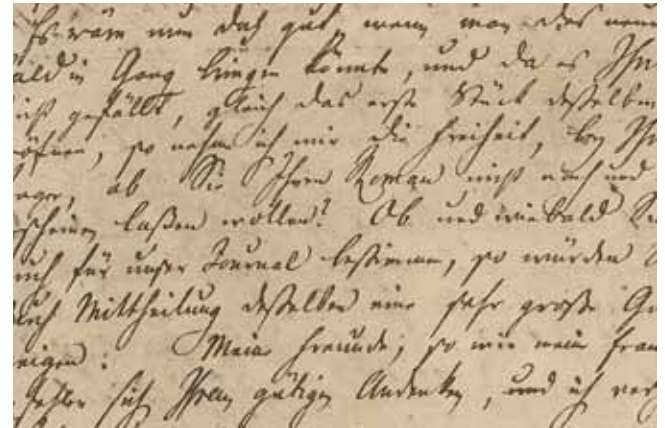 Es wäre nun doch gut, wenn man dies neue
bald in Gang bringen könnte, und da es Ihn
nicht gefällt, gleich das erste Stück desselben
öfnen, so nehm ich mir die Freiheit, bey Ihn
ragen, ob Sie Ihren Roman nicht nach und
scheinen laßen wollen? Ob und wiebald Sie
auch für unser Journal bestimmen, so würden
durch Mittheilung desselben eine sehr große G
zeigen: Meine Freunde, so wie meine Frau
pfehlen sich Ihrem gütigen Andenken, und ich